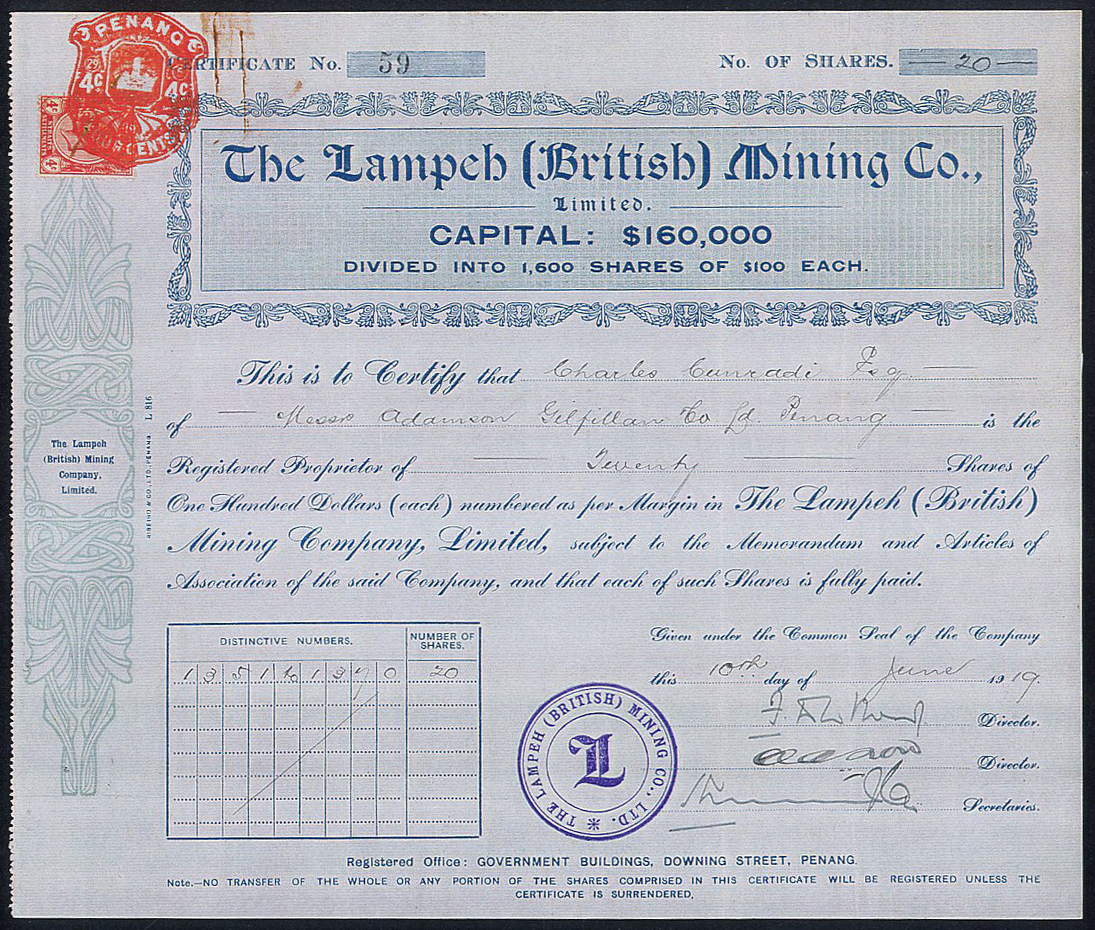 PENANG
4c 4c
CERTIFICATE No. 59
No. OF SHARES. 20
The Lampeh (British) Mining Co.,
Limited.
CAPITAL: $160,000
DIVIDED INTO 1,600 SHARES OF $100 EACH.
This is to Certify that Charles Cunradi Esq
of Messrs Adamson Gilfillan & Co Ld. Penang is the
Registered Proprietor of Twenty Shares of
One Hundred Dollars (each) numbered as per Margin in The Lampeh (British)
Mining Company, Limited, subject to the Memorandum and Articles of
Association of the said Company, and that each of such Shares is fully paid.
The Lampeh
(British) Mining
Company,
Limited.
RIBEIRO & CO., LTD., PENANG. L 816
DISTINCTIVE NUMBERS. NUMBER OF SHARES.
1 3 5 1 to 1 3 7 0 20
Given under the Common Seal of the Company
this 10th day of June 1919.
Director.
Director.
Secretaries.
THE LAMPEH (BRITISH) MINING CO., LTD.
L
Registered Office: GOVERNMENT BUILDINGS, DOWNING STREET, PENANG.
Note.—NO TRANSFER OF THE WHOLE OR ANY PORTION OF THE SHARES COMPRISED IN THIS CERTIFICATE WILL BE REGISTERED UNLESS THE
CERTIFICATE IS SURRENDERED.